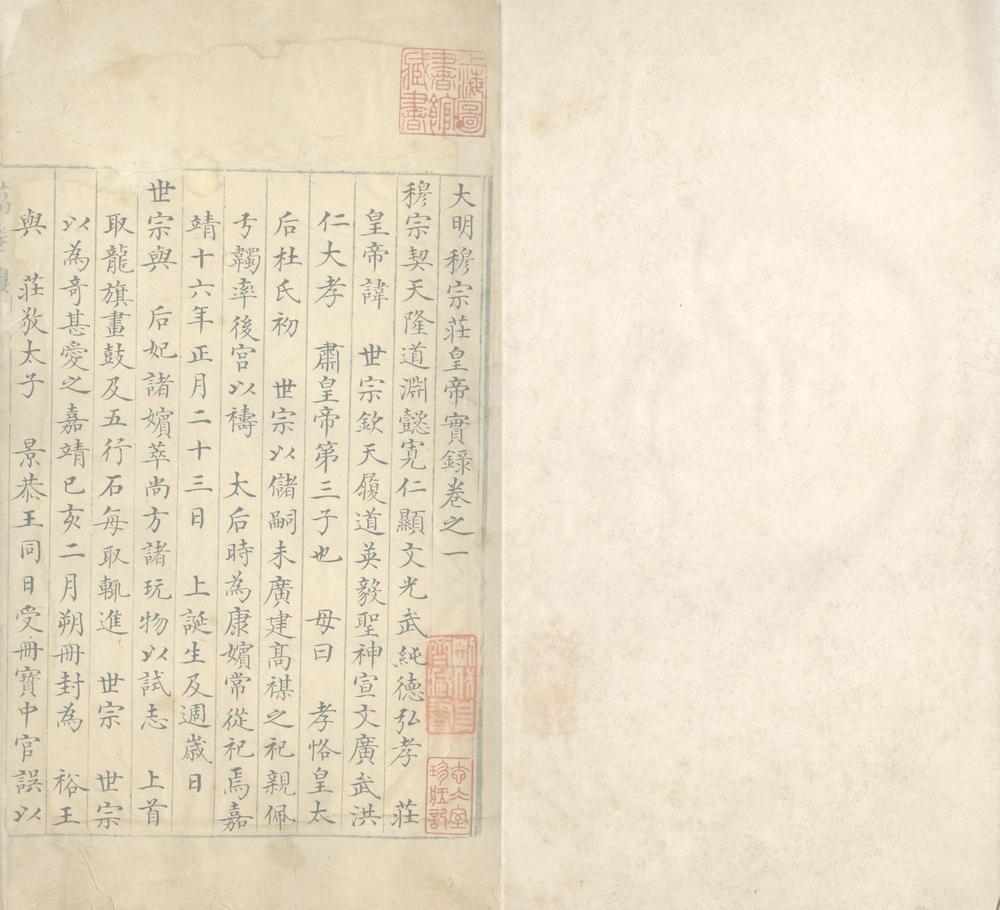 大明穆宗莊皇帝實錄卷之一
穆宗契天隆道淵懿寬仁顯文光武純德弘孝 莊
皇帝諱 世宗欽天履道英毅聖神宣文廣武洪
仁大孝 肅皇帝第三子也 母曰 孝恪皇太
后杜氏初 世宗以儲嗣未廣建高禖之祀親佩
弓韣率後宮以禱 太后時為康嬪常從祀焉嘉
靖十六年正月二十三日 上誕生及週歲日
世宗與 后妃諸嬪萃尚方諸玩物以試志 上首
取龍旗畫鼓及五行石每取輒進 世宗 世宗
以為奇甚愛之嘉靖已亥二月朔冊封為 裕王
與 莊敬太子 景恭王同日受冊寶中官誤以
上海圖書館藏書